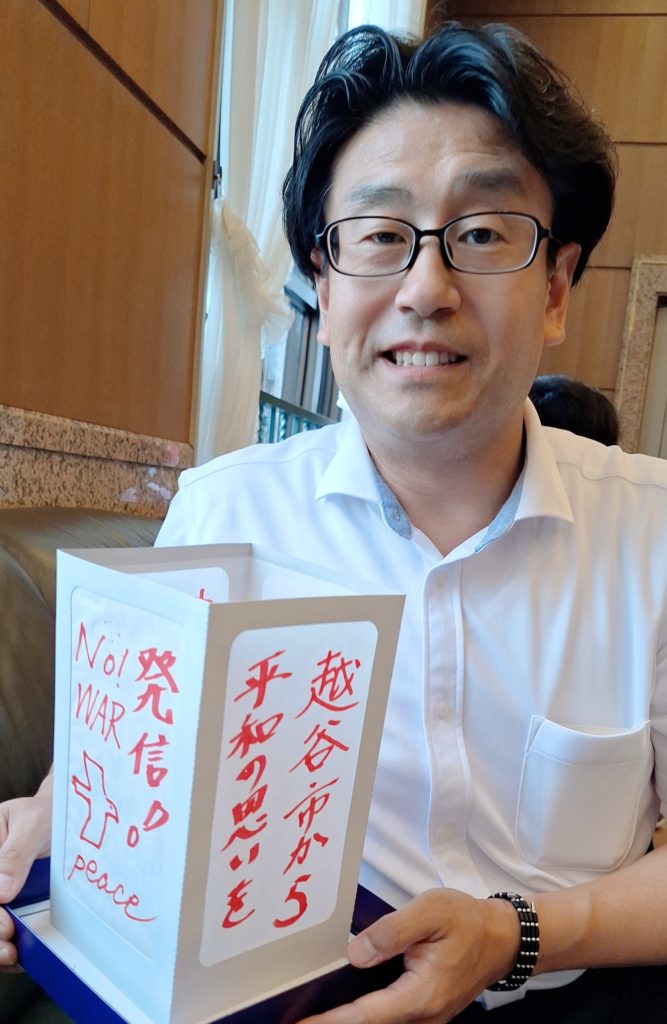 越谷市から
平和の思いを
発信!!
No!
WAR
peace